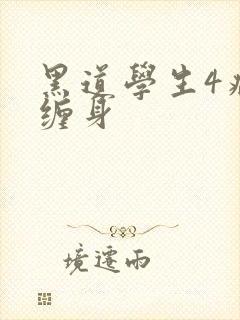 黑道學生4
缠身
境遷雨